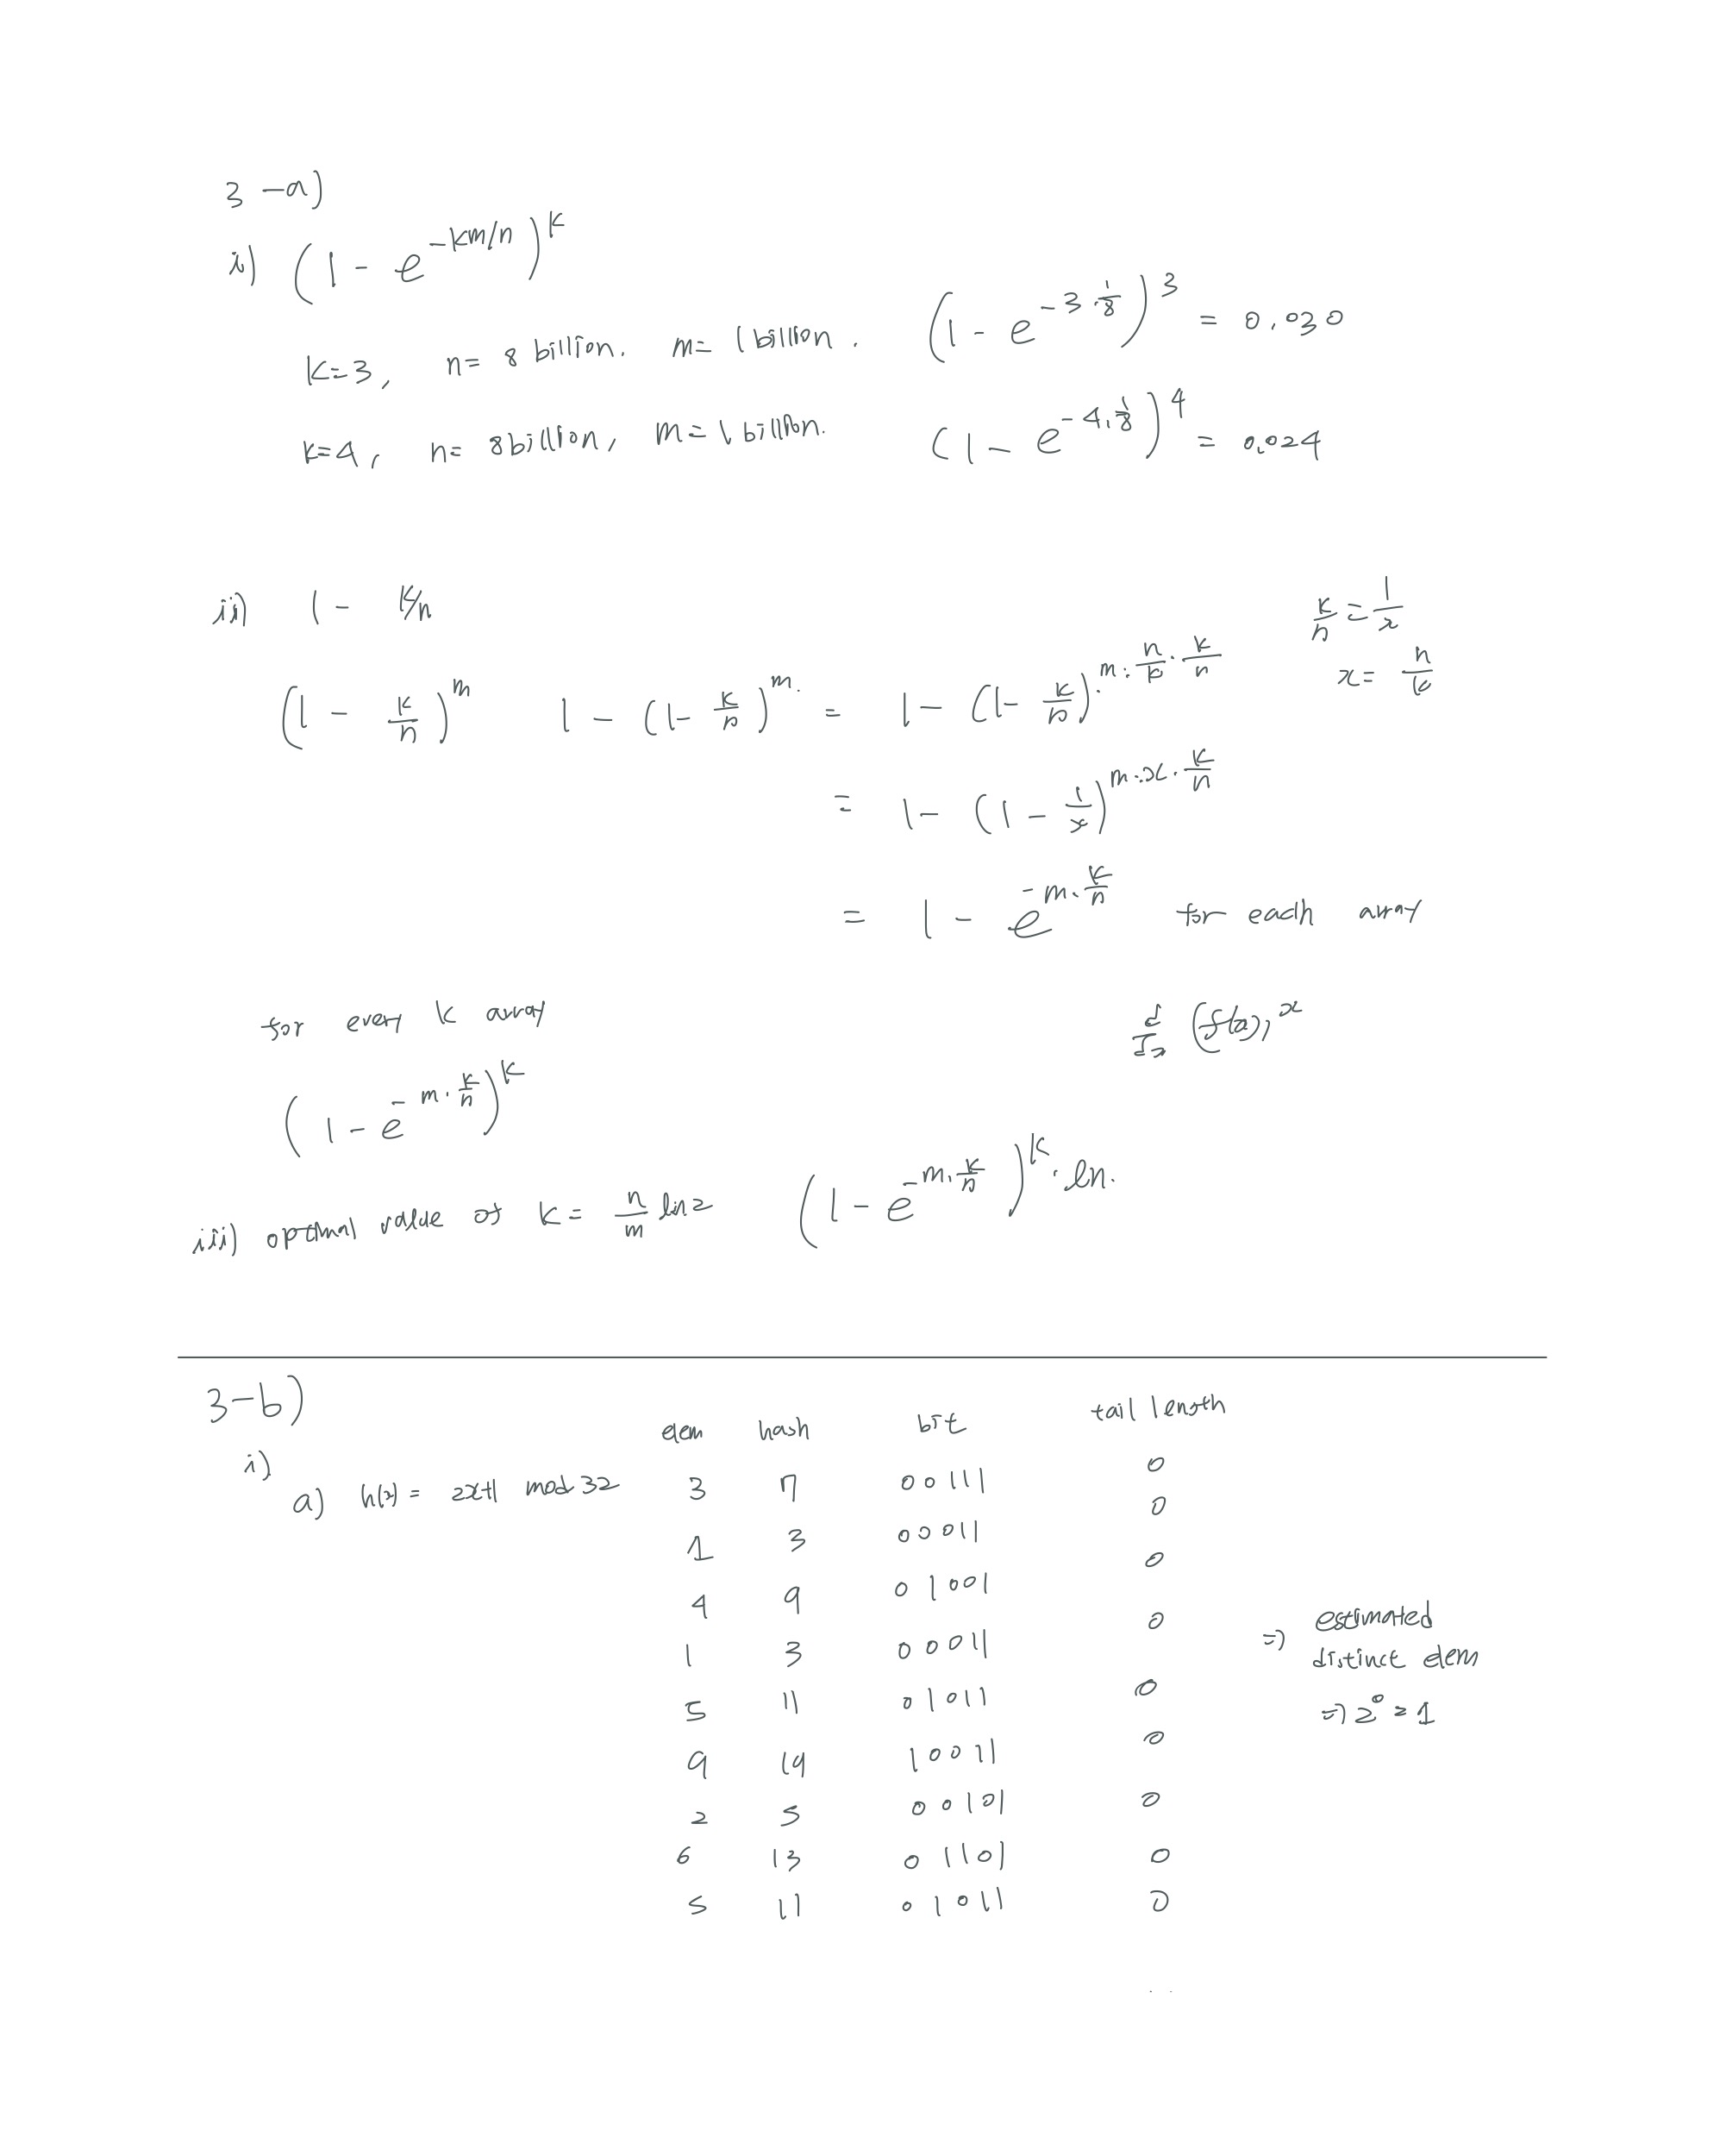 3 -a)
i) (1 - e^{-km/n})^k
k=3, n= 8 billion. m= 1 billion. (1 - e^{-3·1/8})^3 = 0.030
k=4, n= 8 billion, m= 1 billion. (1 - e^{-4·1/8})^4 = 0.024
ii) 1 - k/n
k/n = 1/x
x = n/k
(1 - k/n)^m 1 - (1 - k/n)^m = 1 - (1 - k/n)^{m·n/k·k/n}
= 1 - (1 - 1/x)^{m·x·k/n}
= 1 - e^{-m·k/n} for each array
for every k array
d/dx (f(x))^x
(1 - e^{-m·k/n})^k
iii) optimal value of k = n/m ln2 (1 - e^{-m·k/n})^k · ln.
3-b)
elem hash bit tail length
i)
a) h(x) = 2x+1 mod 32 3 7 00111 0
1 3 00011 0
4 9 01001 0
1 3 00011 0
5 11 01011 0
9 19 10011 0
2 5 00101 0
6 13 01101 0
5 11 01011 0
=) estimated
distinct elem
=) 2^0 = 1